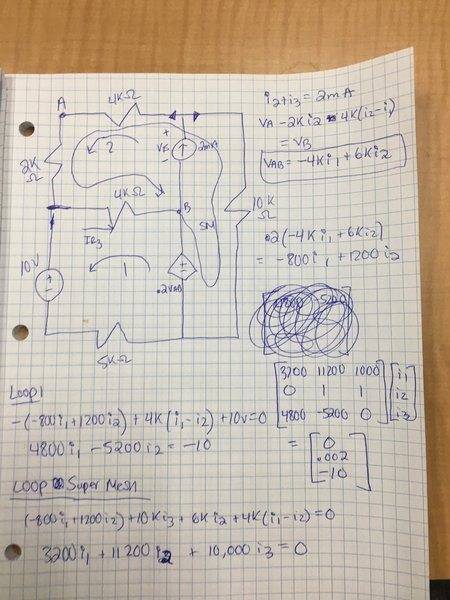 A
4KΩ
2K
Ω
2
+
VIs
-
2mA
4KΩ
B
10K
Ω
SM
IR3
10V
+
-
1
+
-
.2VAB
5KΩ
i2+i3 = 2mA
VA - 2Ki2 - 4K(i2-i1)
= VB
VAB = -4Ki1 + 6Ki2
.2(-4Ki1 + 6Ki2)
= -800i1 + 1200i2
3200 11200 1000 i1
0 1 1 i2
4800 -5200 0 i3
= 0
.002
-10
Loop 1
-(-800i1+1200i2) + 4K(i1-i2) + 10v = 0
4800i1 - 5200i2 = -10
LOOP Super Mesh
(-800i1+1200i2) + 10Ki3 + 6Ki2 + 4K(i1-i2) = 0
3200i1 + 11200i2 + 10,000i3 = 0